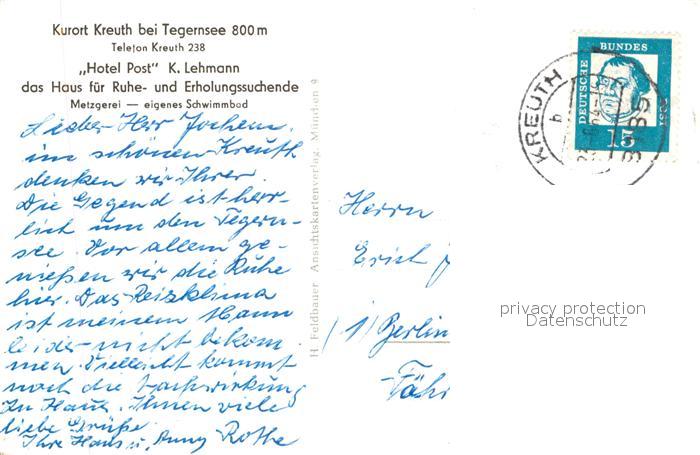 Kurort Kreuth bei Tegernsee 800 m
Telefon Kreuth 238
„Hotel Post“ K. Lehmann
das Haus für Ruhe- und Erholungssuchende
Metzgerei — eigenes Schwimmbad
Lieber Herr Jochem,
im schönen Kreuth
denken wir Ihrer.
Die Gegend ist herr-
lich um den Tegern-
see. Vor allem ge-
nießen wir die Ruhe
hier. Das Reizklima
ist meinem Mann
leider nicht bekom
men. Vielleicht kommt
noch die Nachwirkung
zu Haus. Ihnen viele
liebe Grüße
Ihre Hans u. Anny Rothe
H. Feldbauer Ansichtskartenverlag, München 9
DEUTSCHE
BUNDES
POST
15
KREUTH
b
8185
Herrn
Erich J
(1) Berlin
Föhr
privacy protection
Datenschutz